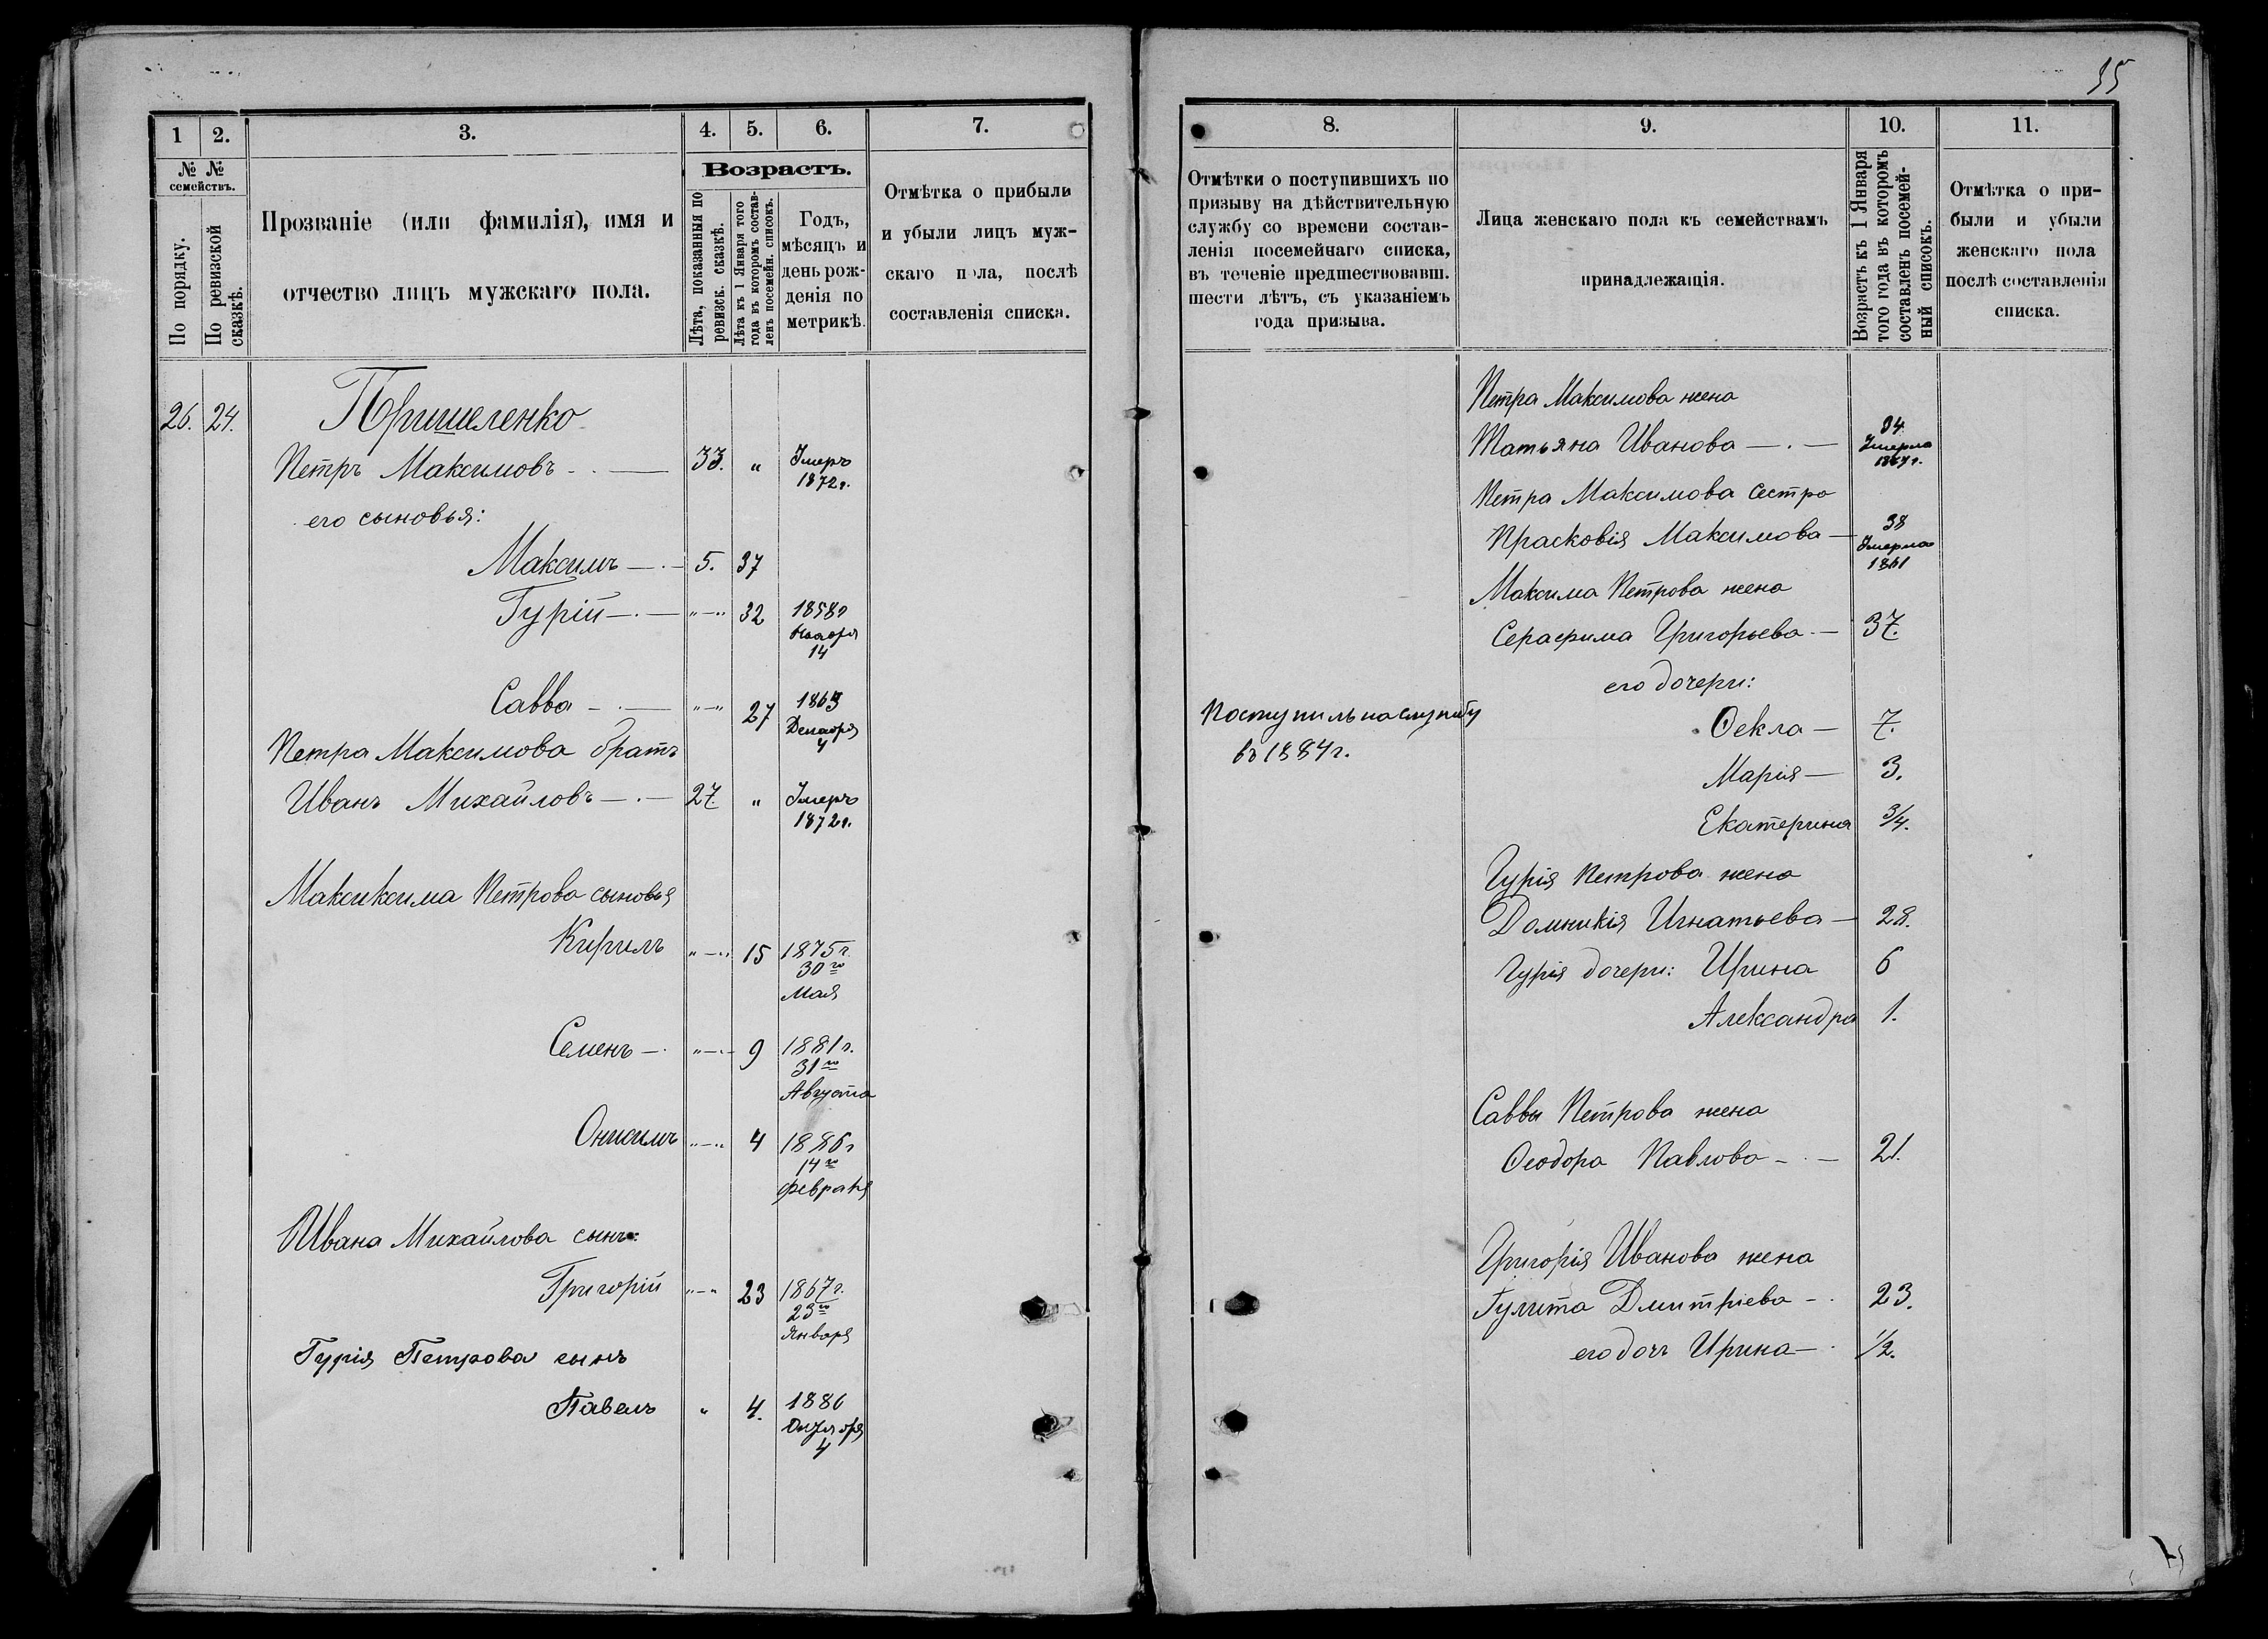 35
1
2.
3.
4.
5.
6.
7.
№ №
семействъ.
По порядку.
По ревизской
сказкѣ.
Прозваніе (или фамилія), имя и
отчество лицъ мужскаго пола.
Возрастъ.
Лѣта, показанныя по
ревизск. сказкѣ.
Лѣта къ 1 Января того
года въ которомъ состав-
ленъ посемейн. списокъ.
Годъ,
мѣсяцъ и
день рож-
денія по
метрикѣ.
Отмѣтка о прибыли
и убыли лицъ муж-
скаго пола, послѣ
составленія списка.
26. 24. Пришеленко
Петръ Максимовъ - . — 33. „ Умеръ
1872 г.
его сыновья:
Максимъ — . — 5. 37
Гурій — . — „—„ 32 1858 г
Ноября
14
Савва — . — „—„ 27 1863
Декабря
4
Петра Максимова братъ
Иванъ Михайловъ — . — 27. „ Умеръ
1872 г.
Максиксима Петрова сыновья
Кирилъ „—„ 15 1875 г.
30го
Мая
Семенъ — . „—„ 9 1881 г.
31го
Августа
Онисимъ „—„ 4 1886 г
14го
февраля
Ивана Михайлова сынъ:
Григорій „—„ 23 1867 г.
23го
Января
Гурія Петрова сынъ
Павелъ „ 4. 1886
Октября
4
8.
9.
10.
11.
Отмѣтки о поступившихъ по
призыву на дѣйствительную
службу со времени состав-
ленія посемейнаго списка,
въ теченіе предшествовавш.
шести лѣтъ, съ указаніемъ
года призыва.
Лица женскаго пола къ семействамъ
принадлежащія.
Возрастъ къ 1 Января
того года въ которомъ
составленъ посемей-
ный списокъ.
Отмѣтка о при-
были и убыли
женскаго пола
послѣ составленія
списка.
Петра Максимова жена
Татьяна Иванова — . — 34
Умерла
1867 г.
Петра Максимова сестра
Прасковія Максимова — 38
Умерла
1861
Максима Петрова жена
Серафима Григорьева — 37.
его дочери:
Поступилъ на службу
въ 1884 г.
Ѳекла — 7.
Марія — 3.
Екатерина 3/4.
Гурія Петрова жена
Домникія Игнатьева — 28.
Гурія дочери: Ирина 6
Александра 1.
Саввы Петрова жена
Ѳеодора Павлова — . — 21.
Григорія Иванова жена
Гулита Дмитріева — . 23.
его дочь Ирина — . 1/2.